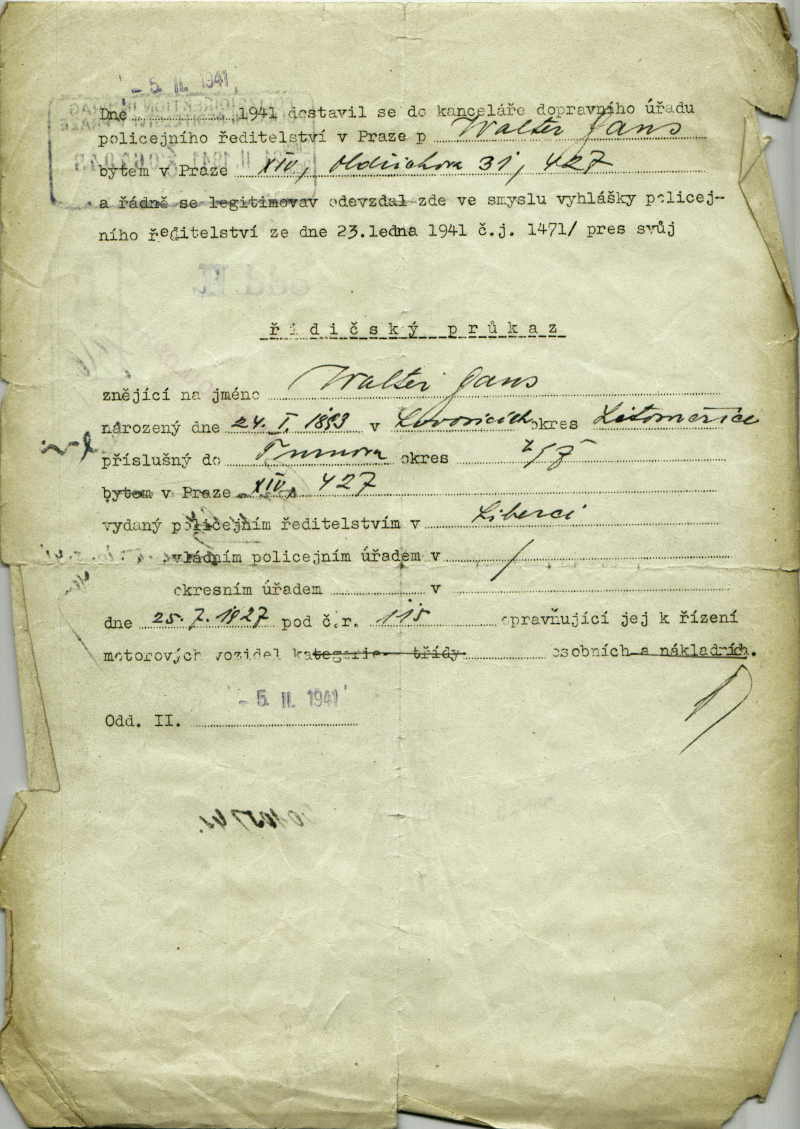 - 5. II. 1941
Dne 1941 dostavil se do kanceláře dopravního úřadu
policejního ředitelství v Praze p Walter Gans
bytem v Praze XIV, Oldřichova 31, 427
a řádně se legitimovav odevzdal zde ve smyslu vyhlášky policej-
ního ředitelství ze dne 23.ledna 1941 č.j. 1471/ pres svůj
řidičský průkaz
znějící na jméno Walter Gans
národzený dne 24. I. 1893 v Lovosicích okres Litoměřice
příslušný do okres
bytem v Praze XIV, 427
vydaný policejním ředitelstvím v Liberci
vládním policejním úřadem v /
okresním úřadem v
dne 25. 7. 1927 pod č.r. 115 opravňující jej k řízení
motorových vozidel kategorie třídy osobních a nákladních.
- 5. II. 1941
Odd. II.